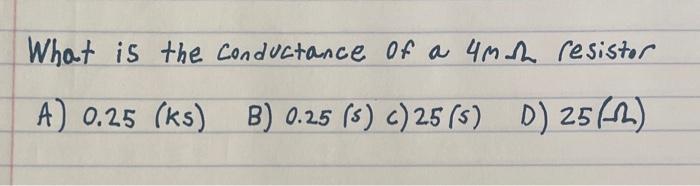 What is the conductance of a 4mΩ resistor
A) 0.25 (ks) B) 0.25 (s) c) 25 (s) D) 25 (Ω)